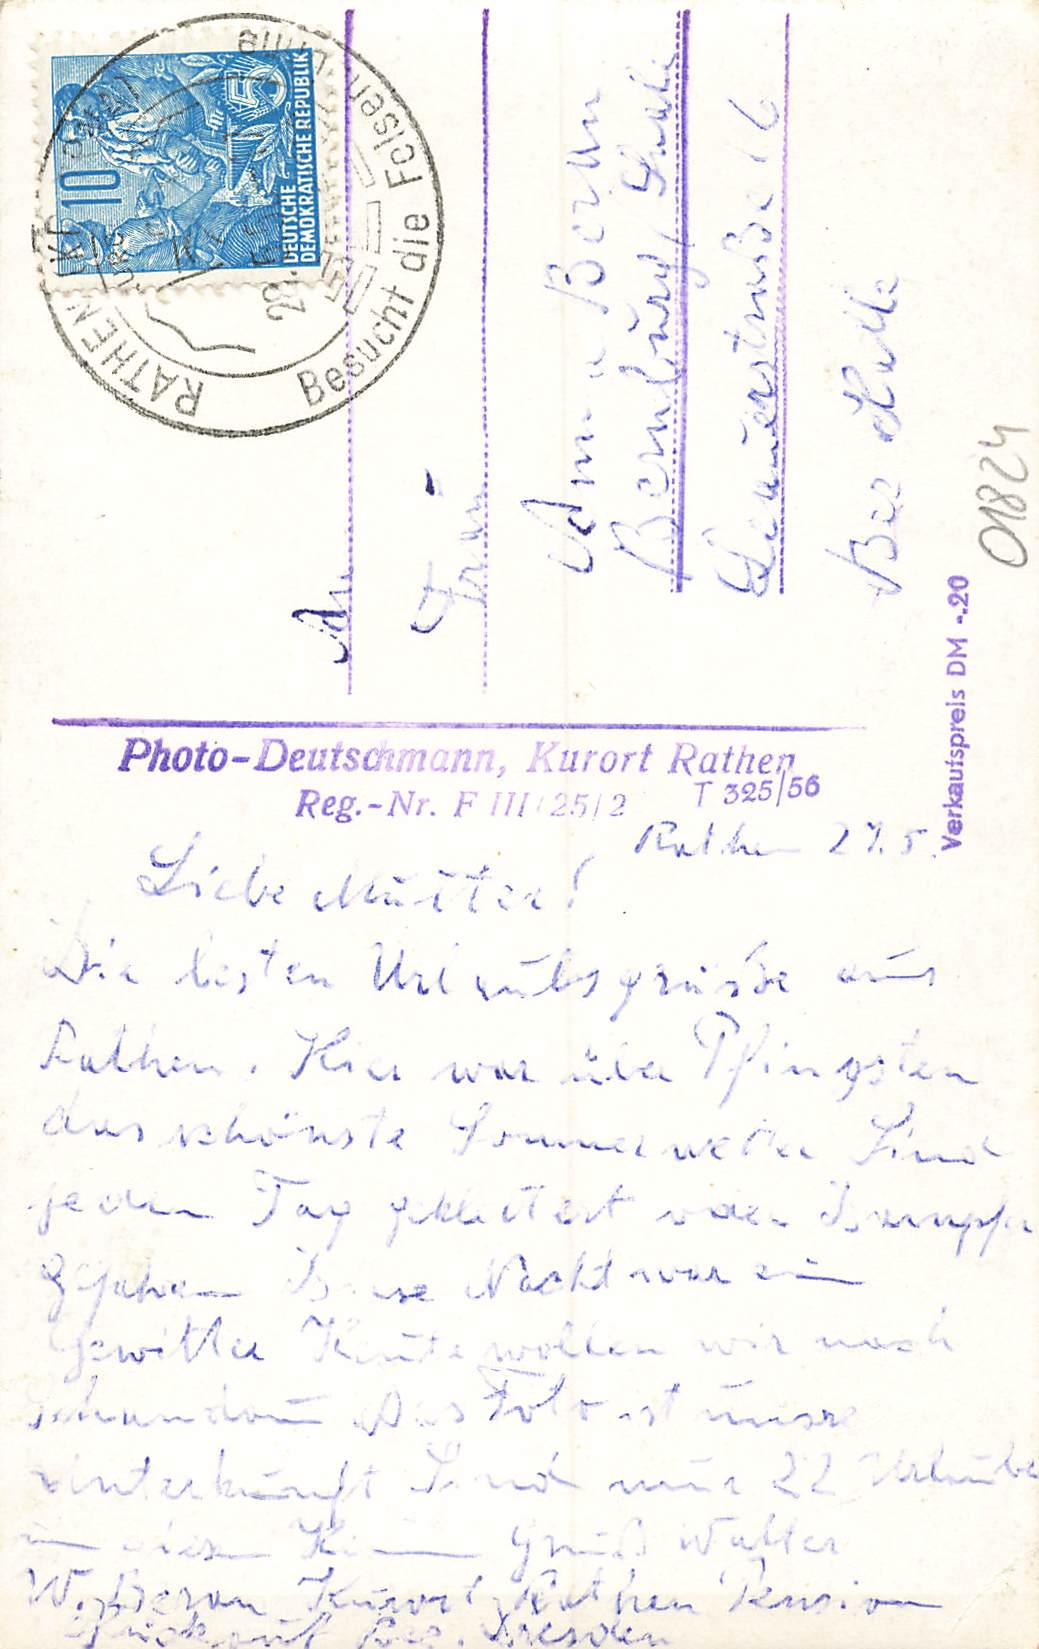 10
DEUTSCHE
DEMOKRATISCHE REPUBLIK
RATHEN
Besucht die Felsen
An
Frau
Anna
Bernburg / Saale
Bez Halle
01824
Verkaufspreis DM -.20
Photo-Deutschmann, Kurort Rathen
Reg.-Nr. F III/25/2 T 325/56
Rathen 27.5.
Liebe Mutter!
Die besten Urlaubsgrüße aus
Rathen. Hier war über Pfingsten
das schönste Sommerwetter Sind
jeden Tag geklettert oder Dampfer
gefahren Diese Nacht war ein
Gewitter Heute wollen wir nach
Schandau Das Foto ist unsre
Unterkunft Sind nur 22 Urlauber
in diesem Gruß Walter
W. Kurort Rathen Pension
Bez. Dresden